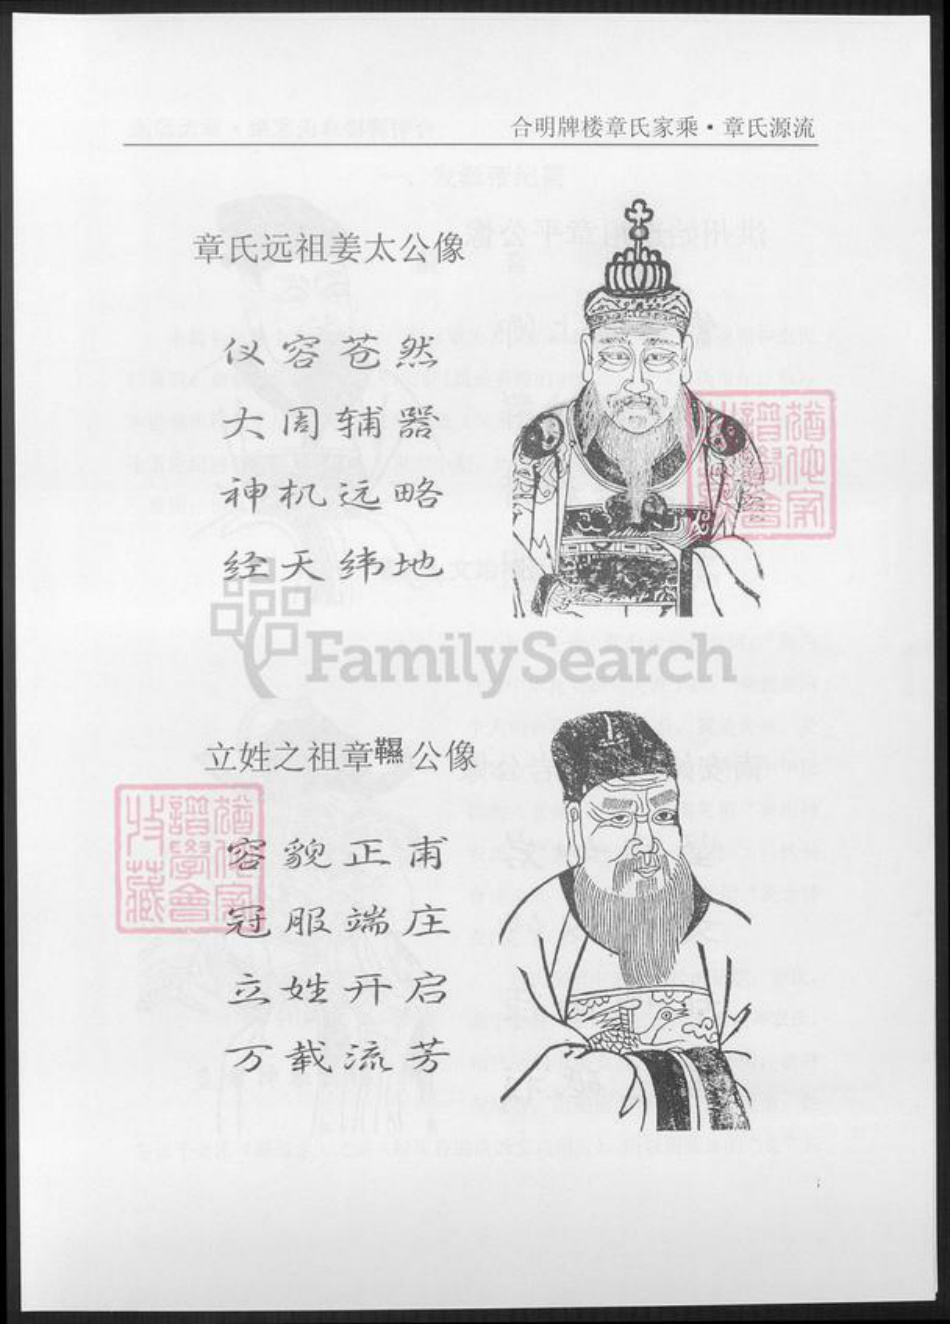 合明牌楼章氏家乘·章氏源流
章氏远祖姜太公像
仪容苍然
大周辅器
神机远略
经天纬地
FamilySearch
立姓之祖章韅公像
容貌正甫
冠服端庄
立姓开启
万载流芳
犹他家
譜學會
收藏